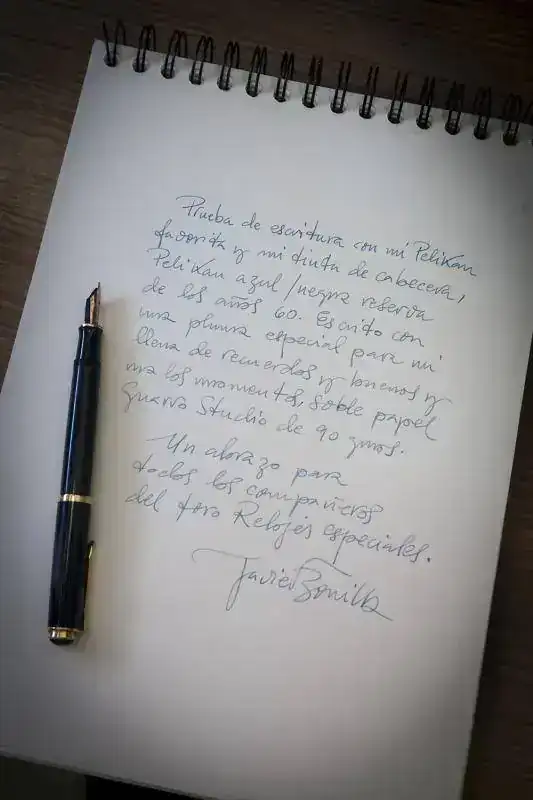 Prueba de escritura con mi Pelikan
favorita y mi tinta de cabecera,
Pelikan azul/negra reserva
de los años 60. Escrito con
una pluma especial para mi
llena de recuerdos y buenos y
ma los momentos, soble papel
Guarro Studio de 90 gmos.
Un abrazo para
todos los compañeros
del foro Relojes especiales.
Javier Bonilla